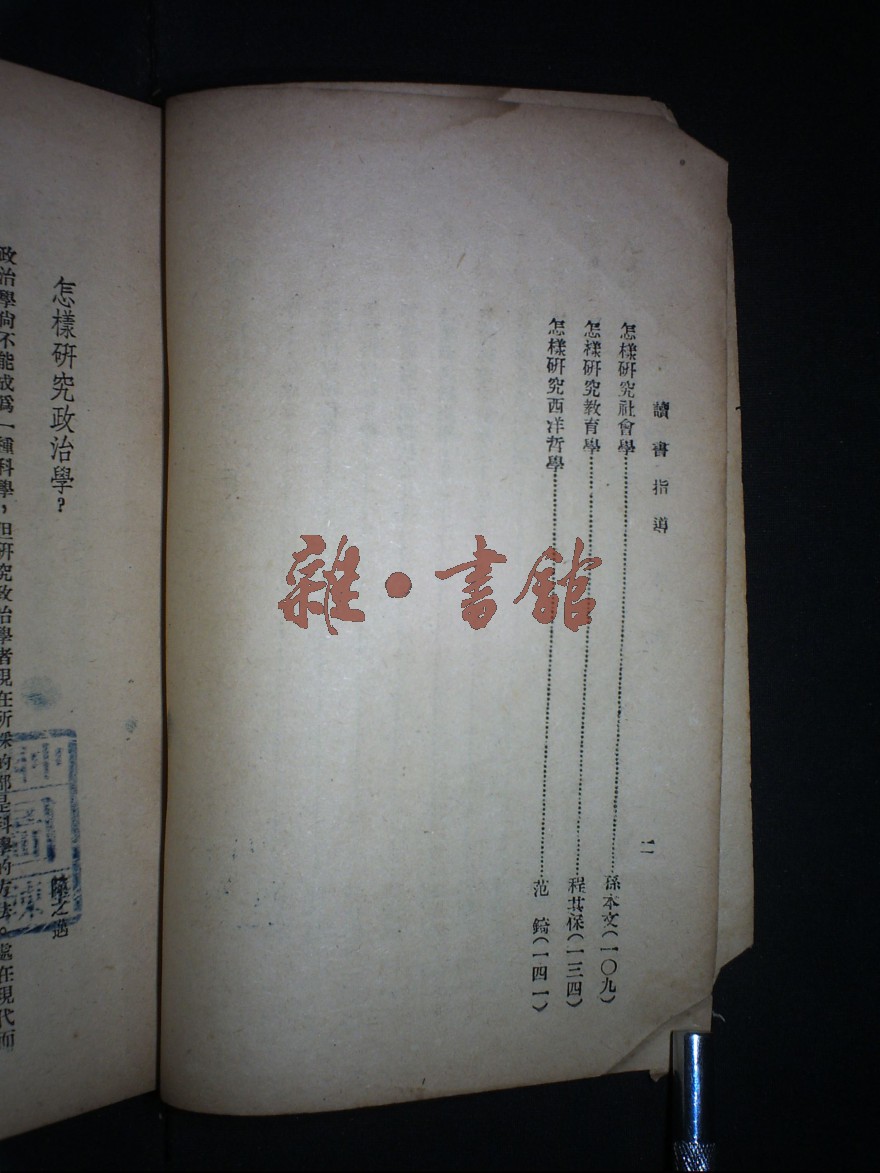 讀書指導
二
怎樣研究社會學……孫本文(一〇九)
怎樣研究教育學……程其保(一三四)
怎樣研究西洋哲學……范 錡(一四一)
雜·書館
怎樣研究政治學?
陳之邁
政治學尙不能成爲一種科學,但研究政治學者現在所採的都是科學的方法。處在現代而